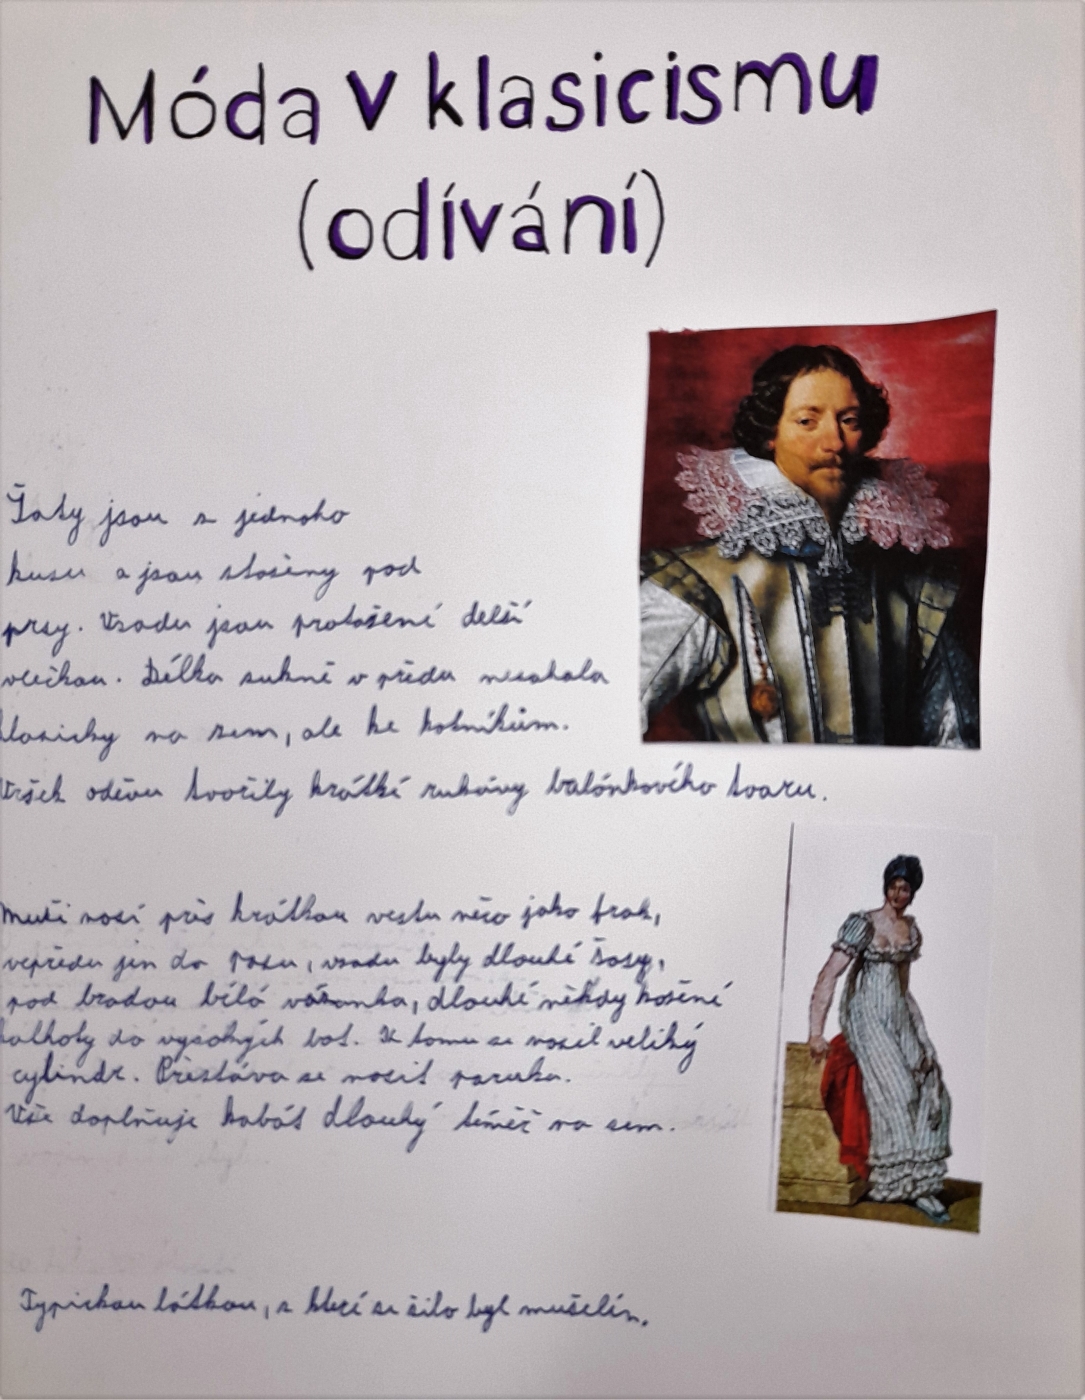 Móda v klasicismu
(odívání)
Šaty jsou z jednoho
kusu a jsou staženy pod
prsy. Vzadu jsou protažené delší
vlečkou. Délka sukně v předu nesahala
klasicky na zem, ale ke kotníkům.
Vršek oděvu tvořily krátké rukávy balónkového tvaru.
Muži nosí přes krátkou vestu něco jako frak,
vepředu jen do pasu, vzadu byly dlouhé šosy,
pod bradou bílá vázanka, dlouhé někdy kožené
kalhoty do vysokých bot. K tomu se nosil veliký
cylindr. Přestává se nosit paruka.
Vše doplňuje kabát dlouhý téměř na zem.
Typickou látkou, z které se šilo byl mušelín.